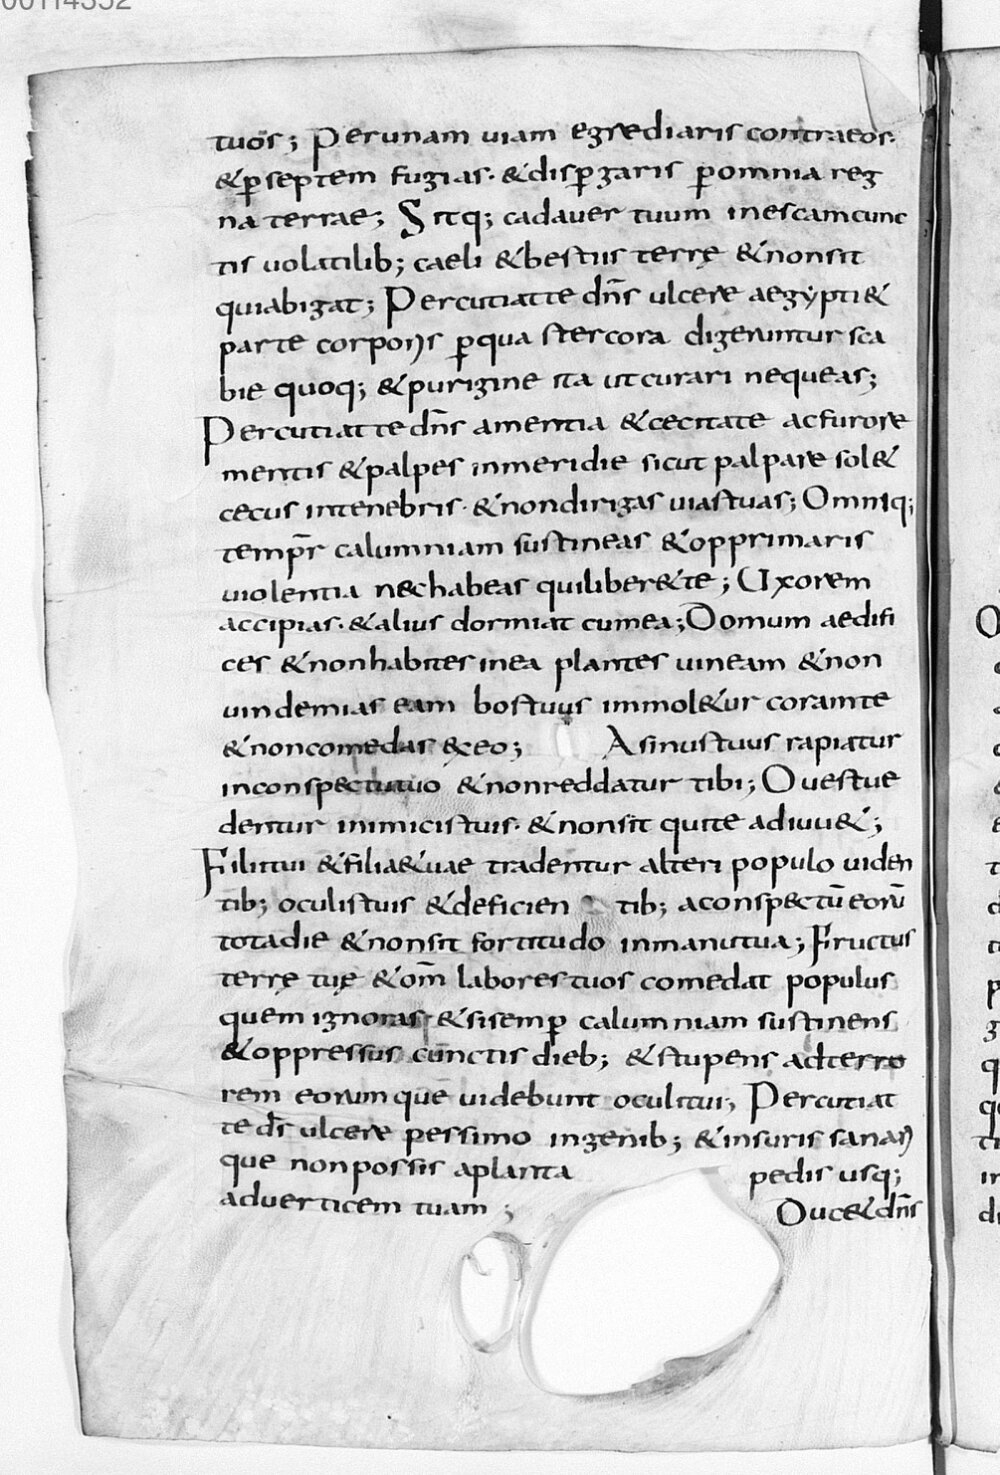 00114352
tuos; Per unam uiam egrediaris contra eos.
& p̄ septem fugias. & disp̄garis p̄ omnia reg
na terrae; Sitq; cadauer tuum in escam cunc
tis uolatilib; caeli & bestiis terrę & non sit
qui abigat; Percutiat te dn̄s ulcere aegypti &
parte corporis p̄ qua stercora digeruntur sca
bie quoq; & purigine ita ut curari nequeas;
Percutiat te dn̄s amentia & cecitate ac furore
mentis & palpes in meridie sicut palpare sol&
cecus in tenebris. & non dirigas uias tuas; Omniq;
temp̄r calumniam sustineas & opprimaris
uiolentia nec habeas qui liber& te; Uxorem
accipias. & alius dormiat cum ea; Domum aedifi
ces & non habites in ea plantes uineam & non
uindemias eam bos tuus immol&ur coram te
& non comedas & eo; Asinus tuus rapiatur
in conspectu tuo & non reddatur tibi; Oues tue
dentur inimicis tuis. & non sit qui te adiuu&;
Filii tui & filia& uae tradentur alteri populo uiden
tib; oculis tuis & deficien tib; a conspectū eorū
tota die & non sit fortitudo in manu tua; Fructus
terrę tuę & om̄ labores tuos comedat populus
quem ignoras & sis semp̄ calumniam sustinens
& oppressus cunctis dieb; & stupens ad terro
rem eorum quē uidebunt oculi tui; Percutiat
te ds̄ ulcere pessimo in genib; & in suris sanari
que non possis a planta pedis usq;
ad uerticem tuam; Duc& dn̄s